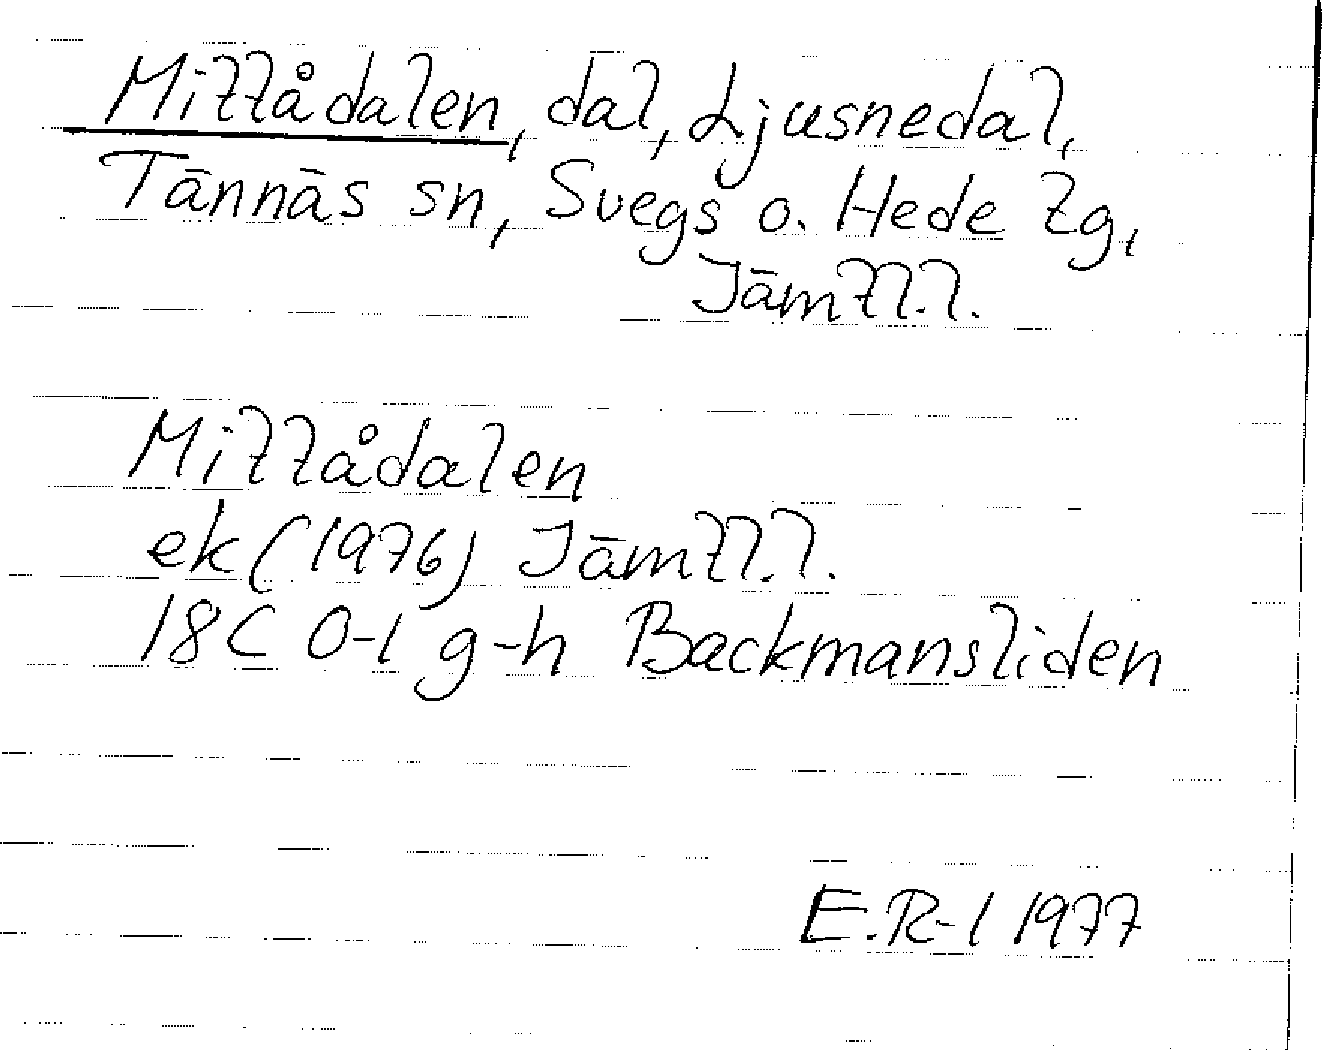 Mittådalen, dal, Ljusnedal,
Tännäs sn, Svegs o. Hede tg,
Jämtl.l.
Mittådalen
ek (1976) Jämtl.l.
18C 0-1 g-h Backmansliden
E.R-l 1977